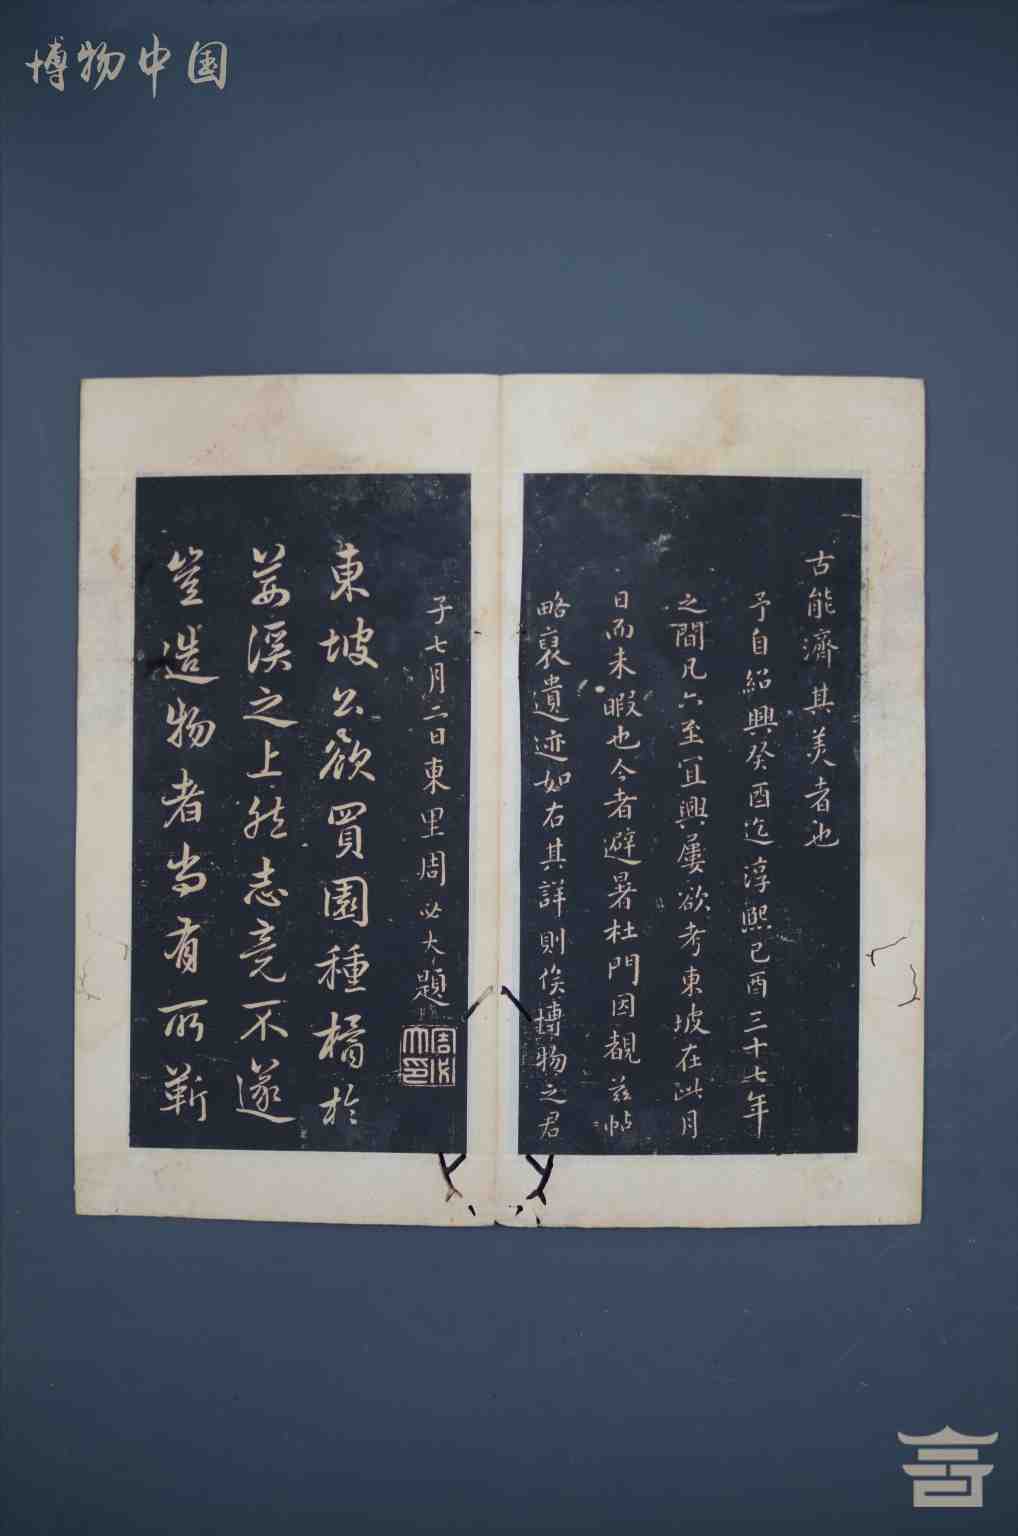 博物中国
古能濟其美者也
予自紹興癸酉迄淳熙己酉三十七年
之間凡六至宜興屢欲考東坡在此月
日而未暇也今者避暑杜門因覩茲帖
略裒遺迹如右其詳則俟博物之君
子七月二日東里周必大題
周必大印
東坡公欲買園種橘於
荊溪之上然志竟不遂
豈造物者尚有所靳